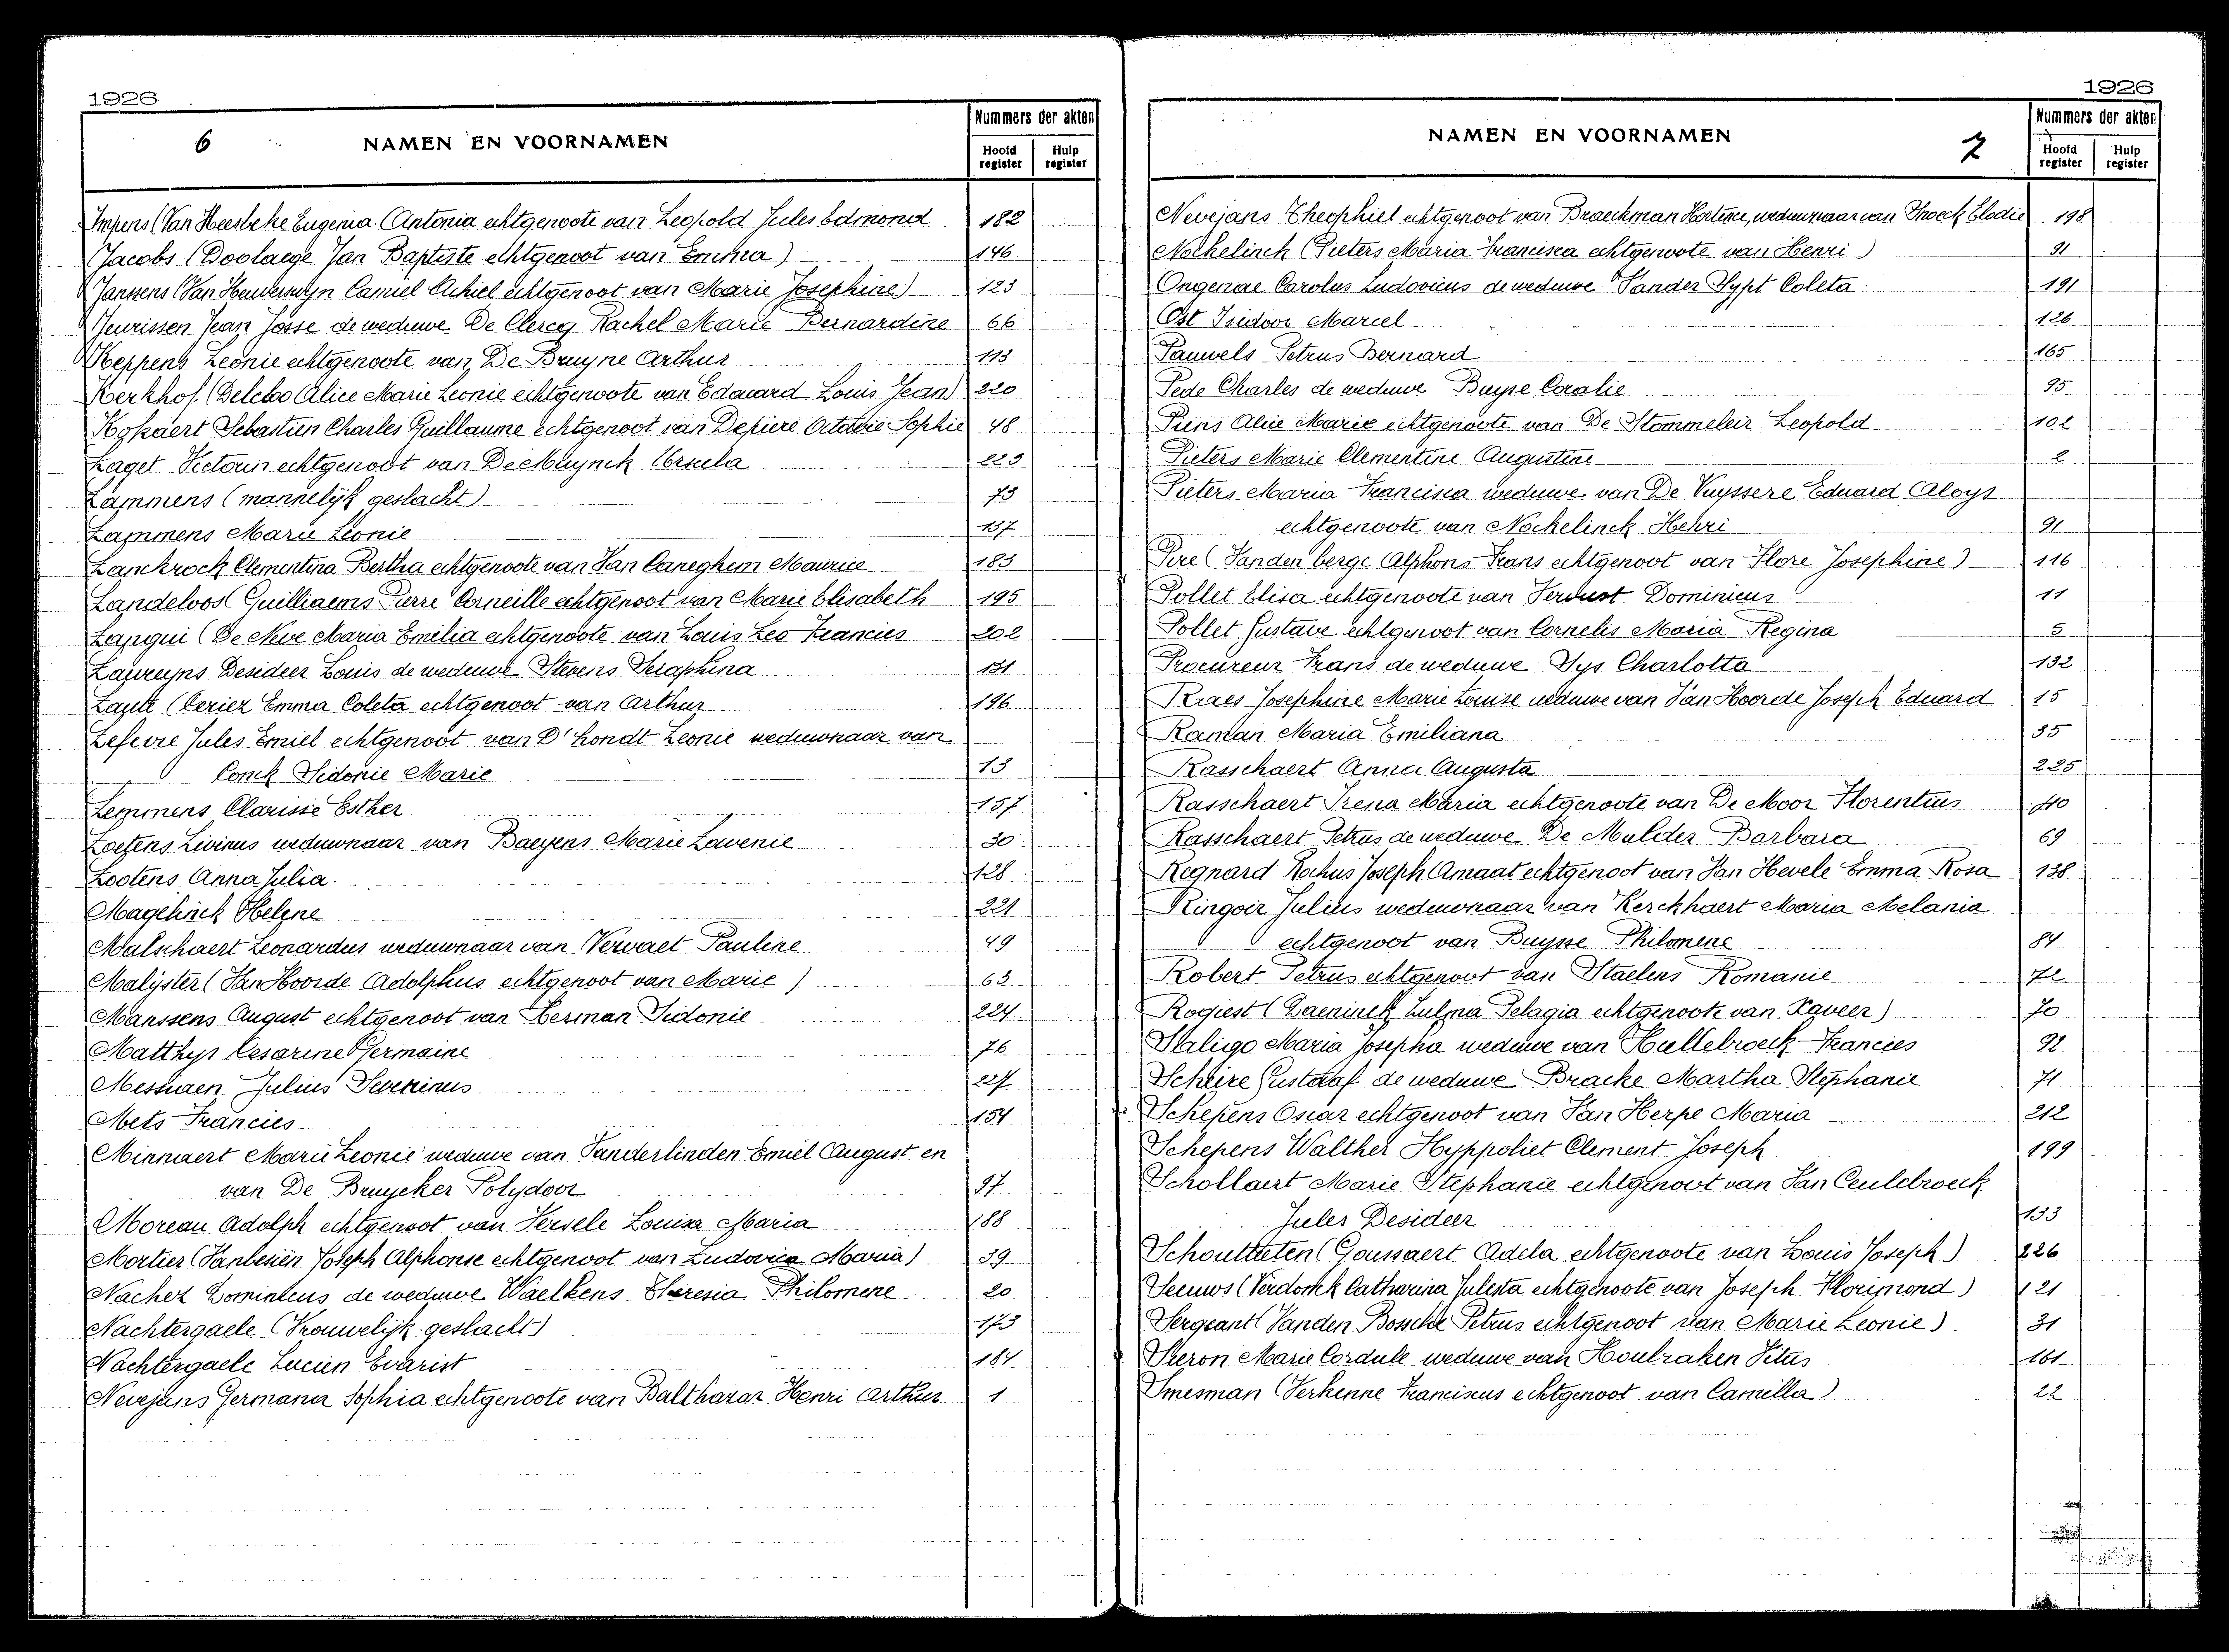 1926
6
NAMEN EN VOORNAMEN
Nummers der akten
Hoofd register
Hulp register
Impens (Van Heesbeke Eugenia Antonia echtgenoote van Leopold Jules Edmond 182
Jacobs (Doolaege Jan Baptiste echtgenoot van Emma) 146
Janssens (Van Heuverswyn Camiel Achiel echtgenoot van Marie Josephine) 123
Jeurissen Jean Josse de weduwe De Clercq Rachel Marie Bernardine 66
Keppens Leonie echtgenoote van De Bruyne Arthur 113
Kerkhof (Delcloo Alice Marie Leonie echtgenoote van Edouard Louis Jean) 220
Kokaert Sebastien Charles Guillaume echtgenoot van Depiere Octavie Sophie 48
Laget Victorin echtgenoot van De Muynck Ursula 223
Lammens (mannelijk geslacht) 73
Lammens Marie Leonie 137
Lanckrock Clementina Bertha echtgenoote van Van Caneghem Maurice 183
Landeloos (Guilliaems Pierre Corneille echtgenoot van Marie Elisabeth 195
Lanqui (De Neve Maria Emilia echtgenoote van Louis Leo Francies 202
Laureyns Desideer Louis de weduwe Stevens Seraphina 131
Laute (Ceriez Emma Coleta echtgenoot van Arthur 196
Lefevre Jules Emiel echtgenoot van D'hondt Leonie weduwnaar van
Conck Sidonie Marie 13
Lemmens Clarisse Esther 157
Loefens Livinus weduwnaar van Baeyens Marie Lavenie 30
Lootens Anna Julia. 128
Magelinck Helene 221
Malschaert Leonardus weduwnaar van Vervaet Pauline 49
Malyster (Van Hoorde Adolphus echtgenoot van Marie) 63
Manssens August echtgenoot van Herman Sidonie 224
Matthys Cesarine Germaine 76
Messiaen Julius Severinus 227
Mets Francies 154
Minnaert Marie Leonie weduwe van Vanderlinden Emiel August en
van De Bruycker Polydoor 97
Moreau Adolph echtgenoot van Versele Louisa Maria 188
Mortier (Vanbesien Joseph Alphonse echtgenoot van Ludovica Maria) 39
Nachez Dominicus de weduwe Waelkens Theresia Philomene 20
Nachtergaele (Vrouwelijk geslacht) 173
Nachtergaele Lucien Evarist 184
Nevejans Germana Sophia echtgenoote van Balthazar Henri Arthur 1
1926
NAMEN EN VOORNAMEN
7
Nummers der akten
Hoofd register
Hulp register
Nevejans Theophiel echtgenoot van Braeckman Hortence, weduwnaar van Snoeck Elodie 198
Nockelinck (Pieters Maria Francisca echtgenoote van Henri) 91
Ongenae Carolus Ludovicus de weduwe Vander Sypt Coleta 191
Ost Isidoor Marcel 126
Pauwels Petrus Bernard 165
Pede Charles de weduwe Buyse Coralie 95
Piens Alice Marie echtgenoote van De Stommeleir Leopold 102
Pieters Marie Clementine Augustine 2
Pieters Maria Francisca weduwe van De Vuyssere Eduard Aloys
echtgenoote van Nockelinck Henri 91
Pire (Vanden berge Alphons Frans echtgenoot van Flore Josephine) 116
Pollet Elisa echtgenoote van Verdust Dominicus 11
Pollet Gustave echtgenoot van Cornelis Maria Regina 5
Procureur Frans de weduwe Sys Charlotta 132
Raes Josephine Marie Louise weduwe van Van Hoorde Joseph Eduard 15
Raman Maria Emiliana 35
Rasschaert Anna Augusta 225
Rasschaert Irena Maria echtgenoote van De Moor Florentius 40
Rasschaert Petrus de weduwe De Mulder Barbara 69
Regnard Rochus Joseph Amaat echtgenoot van Van Hevele Emma Rosa 138
Ringoir Julius weduwnaar van Kerckhaert Maria Melania
echtgenoot van Buysse Philomene 84
Robert Petrus echtgenoot van Staelens Romanie 72
Rogiest (Daeninck Zulma Pelagia echtgenoote van Xaveer) 70
Saligo Maria Josepha weduwe van Hullebroeck Francies 92
Scheire Gustaaf de weduwe Bracke Martha Stephanie 71
Schepens Oscar echtgenoot van Van Herpe Maria 212
Schepens Walther Hyppoliet Clement Joseph 199
Schollaert Marie Stephanie echtgenoot van Van Ceulebroeck
Jules Desideer 133
Schoutteten (Goussaert Adela echtgenoote van Louis Joseph) 226
Seeuws (Verdonck Catharina Julesta echtgenoote van Joseph Florimond) 121
Sergeant (Vanden Bossche Petrus echtgenoot van Marie Leonie) 31
Sieron Marie Cordule weduwe van Houbraken Vitus 161
Smesman (Verhenne Franciscus echtgenoot van Camilla) 22